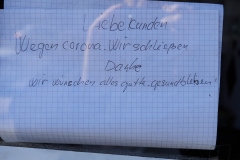 Liebe Kunden
Wegen corona. Wir schließen
Danke
wir wünschen alles gutte. gesundbleiben!